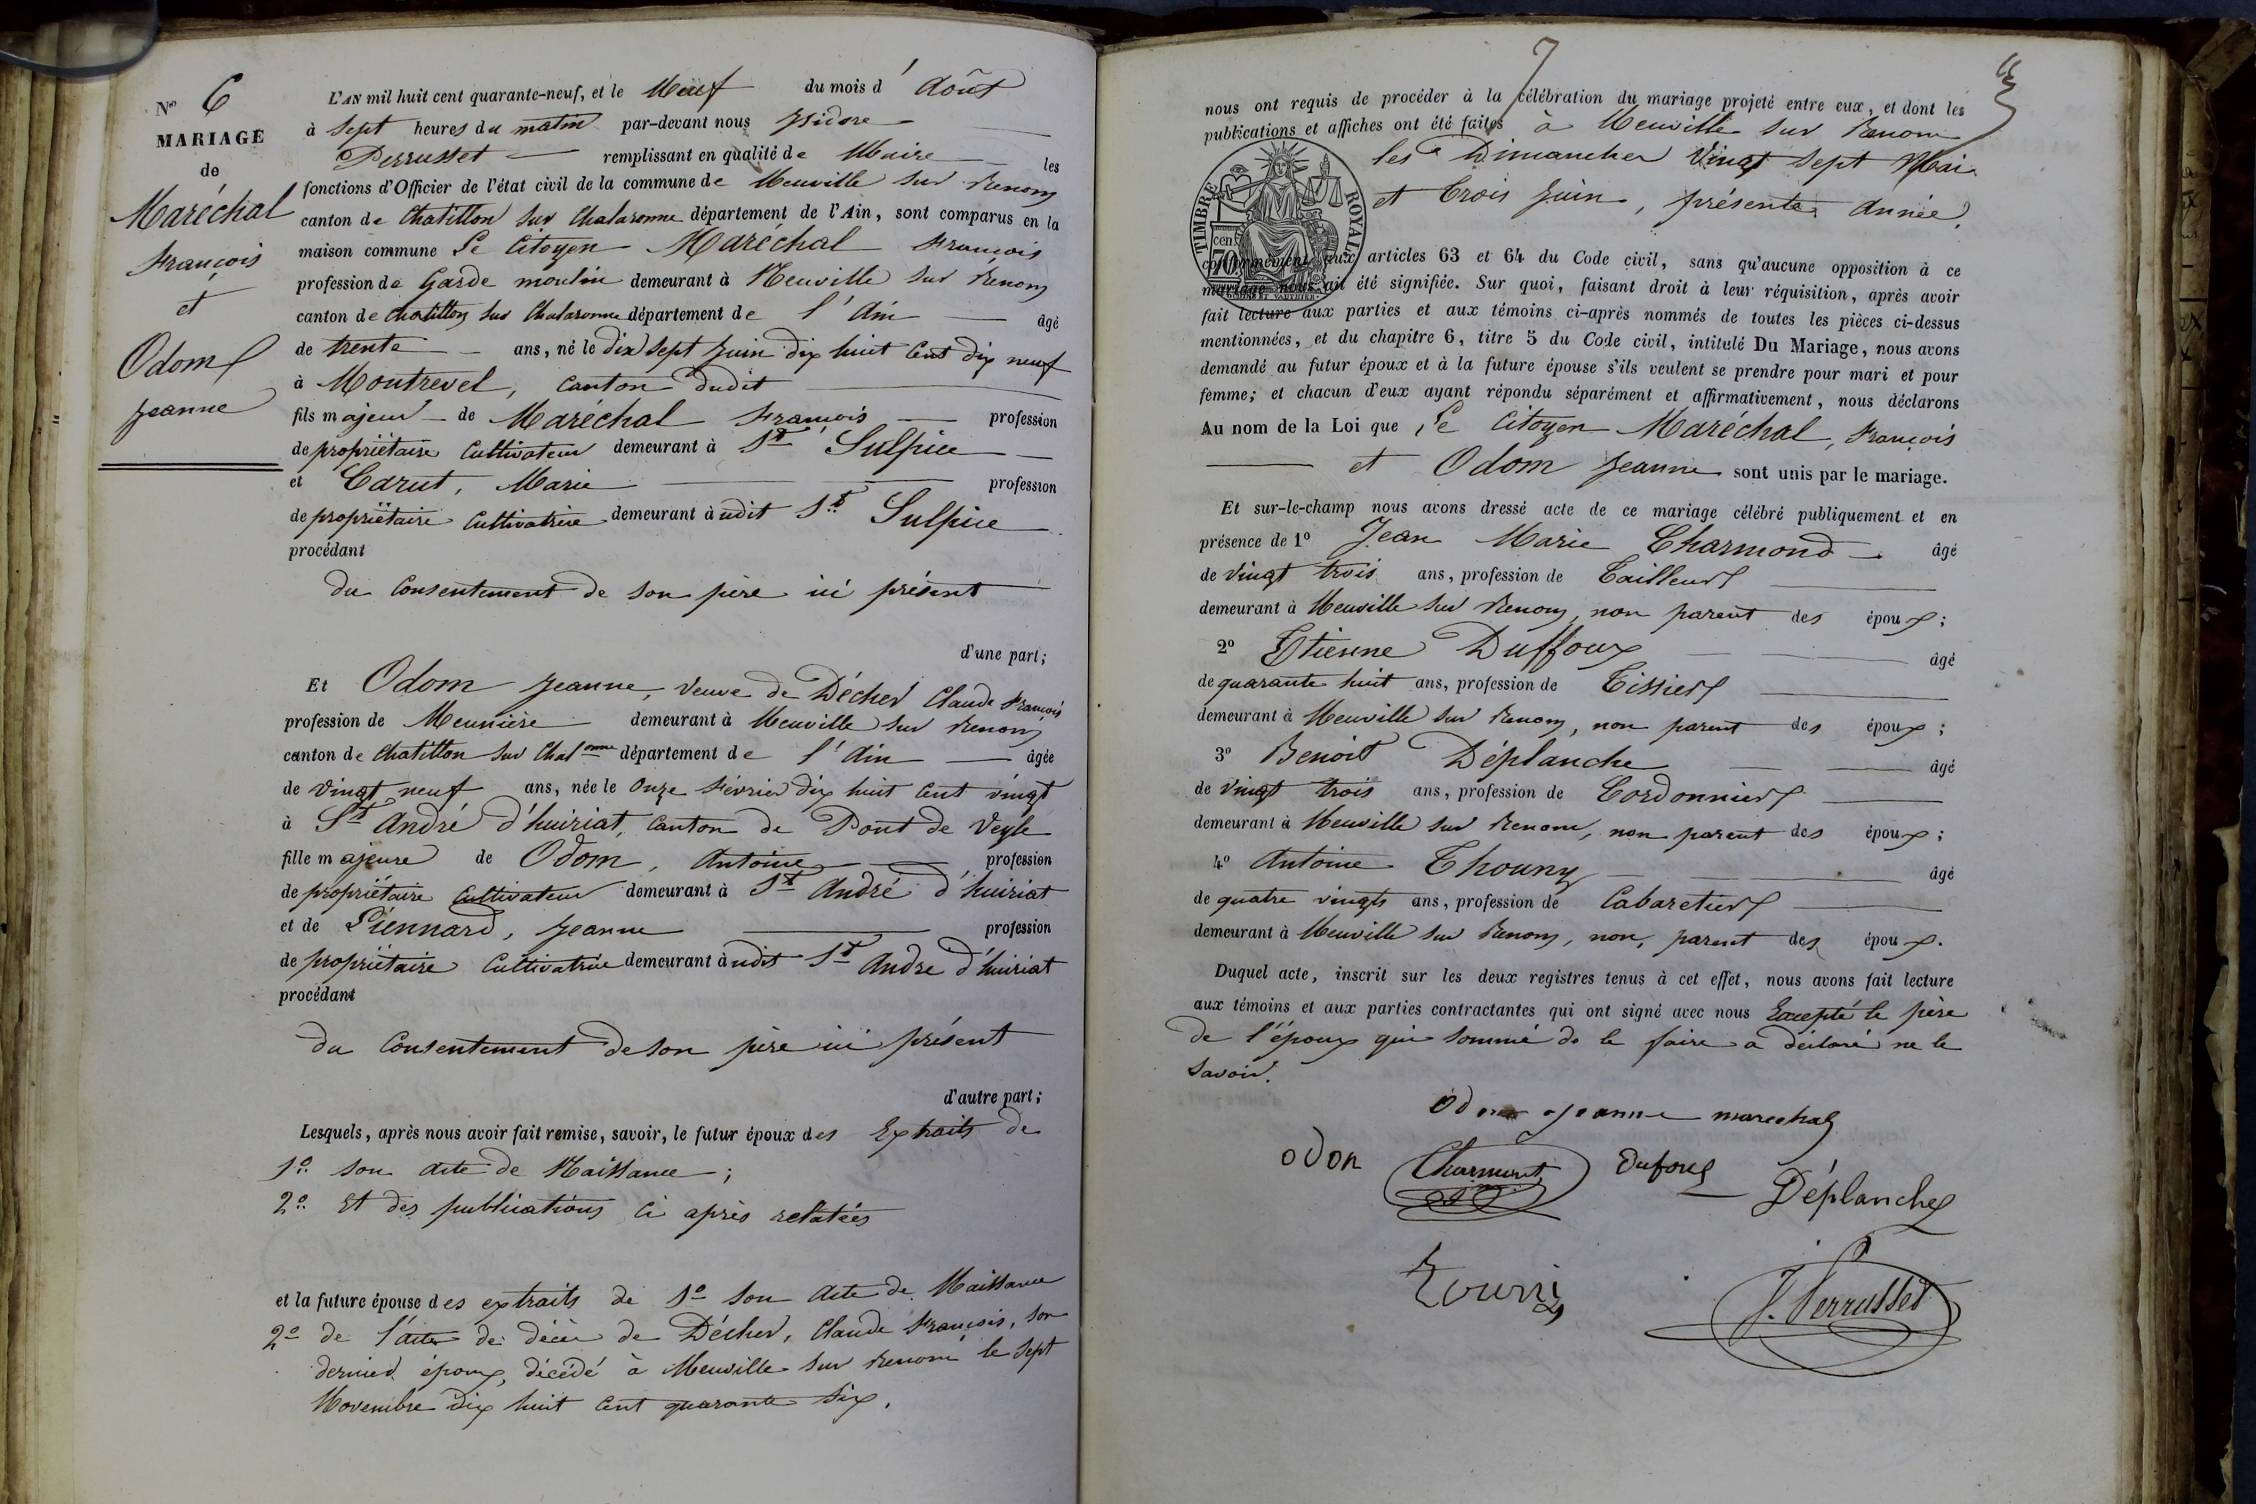 N° 6
MARIAGE
de
Maréchal
François
et
Odom
Jeanne
L'AN mil huit cent quarante-neuf, et le Neuf du mois d'Août
à sept heures du matin par-devant nous Isidore
Perrusset remplissant en qualité de Maire les
fonctions d'Officier de l'état civil de la commune de Neuville sur Renom
canton de Chatillon sur Chalaronne département de l'Ain, sont comparus en la
maison commune Le Citoyen Maréchal François
profession de Garde moulin demeurant à Neuville sur Renom
canton de Chatillon sur Chalaronne département de l'Ain âgé
de trente ans, né le dix sept juin dix huit cent dix neuf
à Montrevel, canton dudit
fils majeur de Maréchal François profession
de propriétaire cultivateur demeurant à St Sulpice
et Carut, Marie profession
de propriétaire cultivatrice demeurant audit St Sulpice
procédant
du consentement de son père ici présent
d'une part;
Et Odom Jeanne, veuve de Décher Claude François
profession de Meunière demeurant à Neuville sur Renom
canton de Chatillon sur Chalonne département de l'Ain âgée
de vingt neuf ans, née le onze février dix huit cent vingt
à St André d'huiriat, canton de Pont de Veyle
fille majeure de Odom, Antoine profession
de propriétaire cultivateur demeurant à St André d'huiriat
et de Piennard, Jeanne profession
de propriétaire cultivatrice demeurant audit St Andre d'huiriat
procédant
du consentement de son père ici présent
d'autre part;
Lesquels, après nous avoir fait remise, savoir, le futur époux des Extraits de
1° son acte de Naissance;
2° Et des publications ci après relatées
et la future épouse des extraits de 1° son acte de Naissance
2° de l'acte de décès de Décher, Claude François, son
dernier époux, décédé à Neuville sur Renom le sept
Novembre dix huit cent quarante six.
7
nous ont requis de procéder à la célébration du mariage projeté entre eux, et dont les
publications et affiches ont été faites à Neuville sur Renom
les Dimanches vingt sept Mai
et trois Juin, présente année,
TIMBRE ROYAL
cen
70
conformément aux articles 63 et 64 du Code civil, sans qu'aucune opposition à ce
mariage nous ait été signifiée. Sur quoi, faisant droit à leur réquisition, après avoir
fait lecture aux parties et aux témoins ci-après nommés de toutes les pièces ci-dessus
mentionnées, et du chapitre 6, titre 5 du Code civil, intitulé Du Mariage, nous avons
demandé au futur époux et à la future épouse s'ils veulent se prendre pour mari et pour
femme; et chacun d'eux ayant répondu séparément et affirmativement, nous déclarons
Au nom de la Loi que Le Citoyen Maréchal, François
et Odom Jeanne sont unis par le mariage.
Et sur-le-champ nous avons dressé acte de ce mariage célébré publiquement et en
présence de 1° Jean Marie Charmond âgé
de vingt trois ans, profession de Tailleur
demeurant à Neuville sur Renom, non parent des époux;
2° Etienne Duffoux âgé
de quarante huit ans, profession de Tissier
demeurant à Neuville sur Renom, non parent des époux;
3° Benoit Déplanche âgé
de vingt trois ans, profession de Cordonnier
demeurant à Neuville sur Renom, non parent des époux;
4° Antoine Thouny âgé
de quatre vingts ans, profession de Cabaretier
demeurant à Neuville sur Renom, non parent des époux.
Duquel acte, inscrit sur les deux registres tenus à cet effet, nous avons fait lecture
aux témoins et aux parties contractantes qui ont signé avec nous Excepté le père
de l'époux qui sommé de le faire a déclaré ne le
savoir.
Odom Jeanne marechal
odon Charmont Dufour Déplanche
J. Perrusset